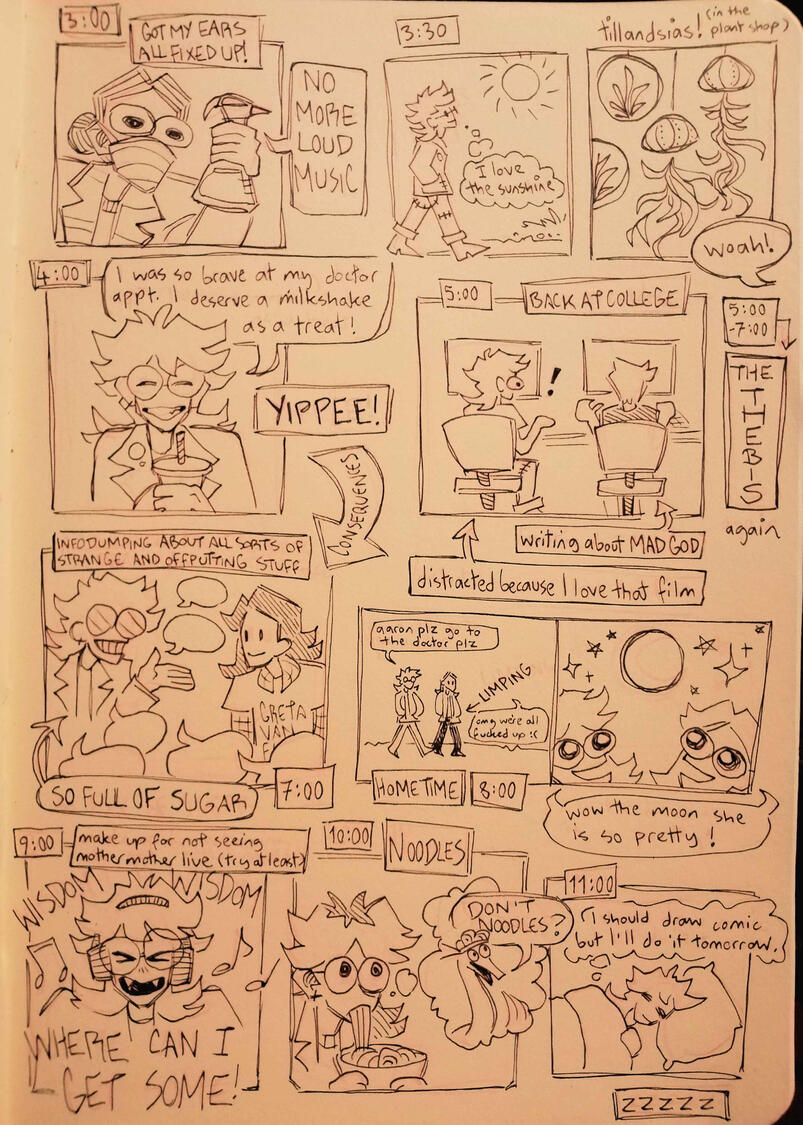 3:00
GOT MY EARS
ALL FIXED UP!
NO
MORE
LOUD
MUSIC
3:30
I love
the sunshine
tillandsias! (in the
plant shop)
woah!
4:00
I was so brave at my doctor
appt. I deserve a milkshake
as a treat!
YIPPEE!
CONSEQUENCES
5:00
BACK AT COLLEGE
!
writing about MAD GOD
distracted because I love that film
5:00
-7:00
THE
THEBIS
again
INFODUMPING ABOUT ALL SORTS OF
STRANGE AND OFFPUTTING STUFF
GRETA
VAN
SO FULL OF SUGAR
7:00
aaron plz go to
the doctor plz
LIMPING
omg we're all
fucked up :(
HOMETIME
8:00
wow the moon she
is so pretty!
9:00
make up for not seeing
mothermother live (try at least)
WISDOM WISDOM
WHERE CAN I
GET SOME!
10:00
NOODLES
DON'T
NOODLES?
11:00
I should draw comic
but I'll do it tomorrow.
ZZZZZ